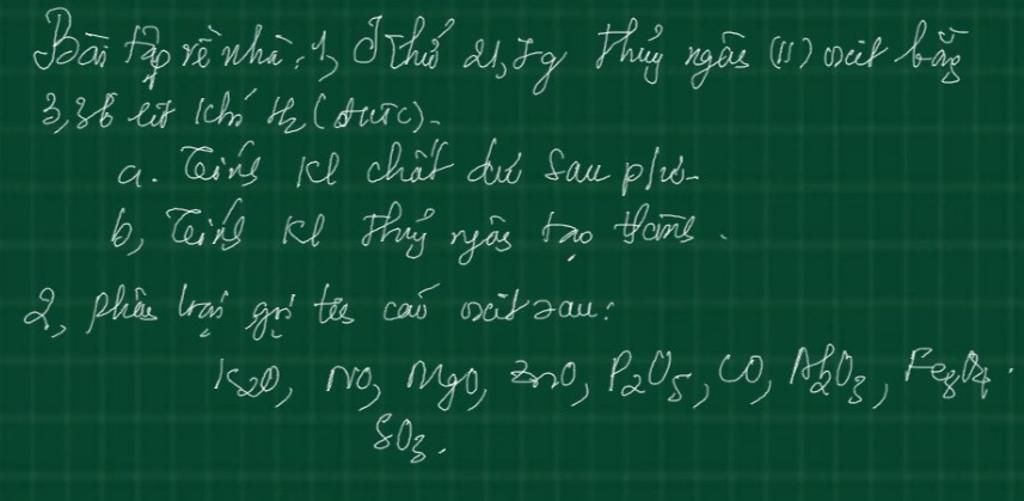 Bài tập về nhà: 1, Khử 21,7g thủy ngân (II) oxit bằng
3,36 lít khí H2 (đktc).
a. Tính Kl chất dư sau p/ư.
b, Tính Kl thủy ngân tạo thành.
2, phân loại gọi tên các oxit sau:
K2O, NO, MgO, ZnO, P2O5, CO, Al2O3, Fe3O4.
SO3.